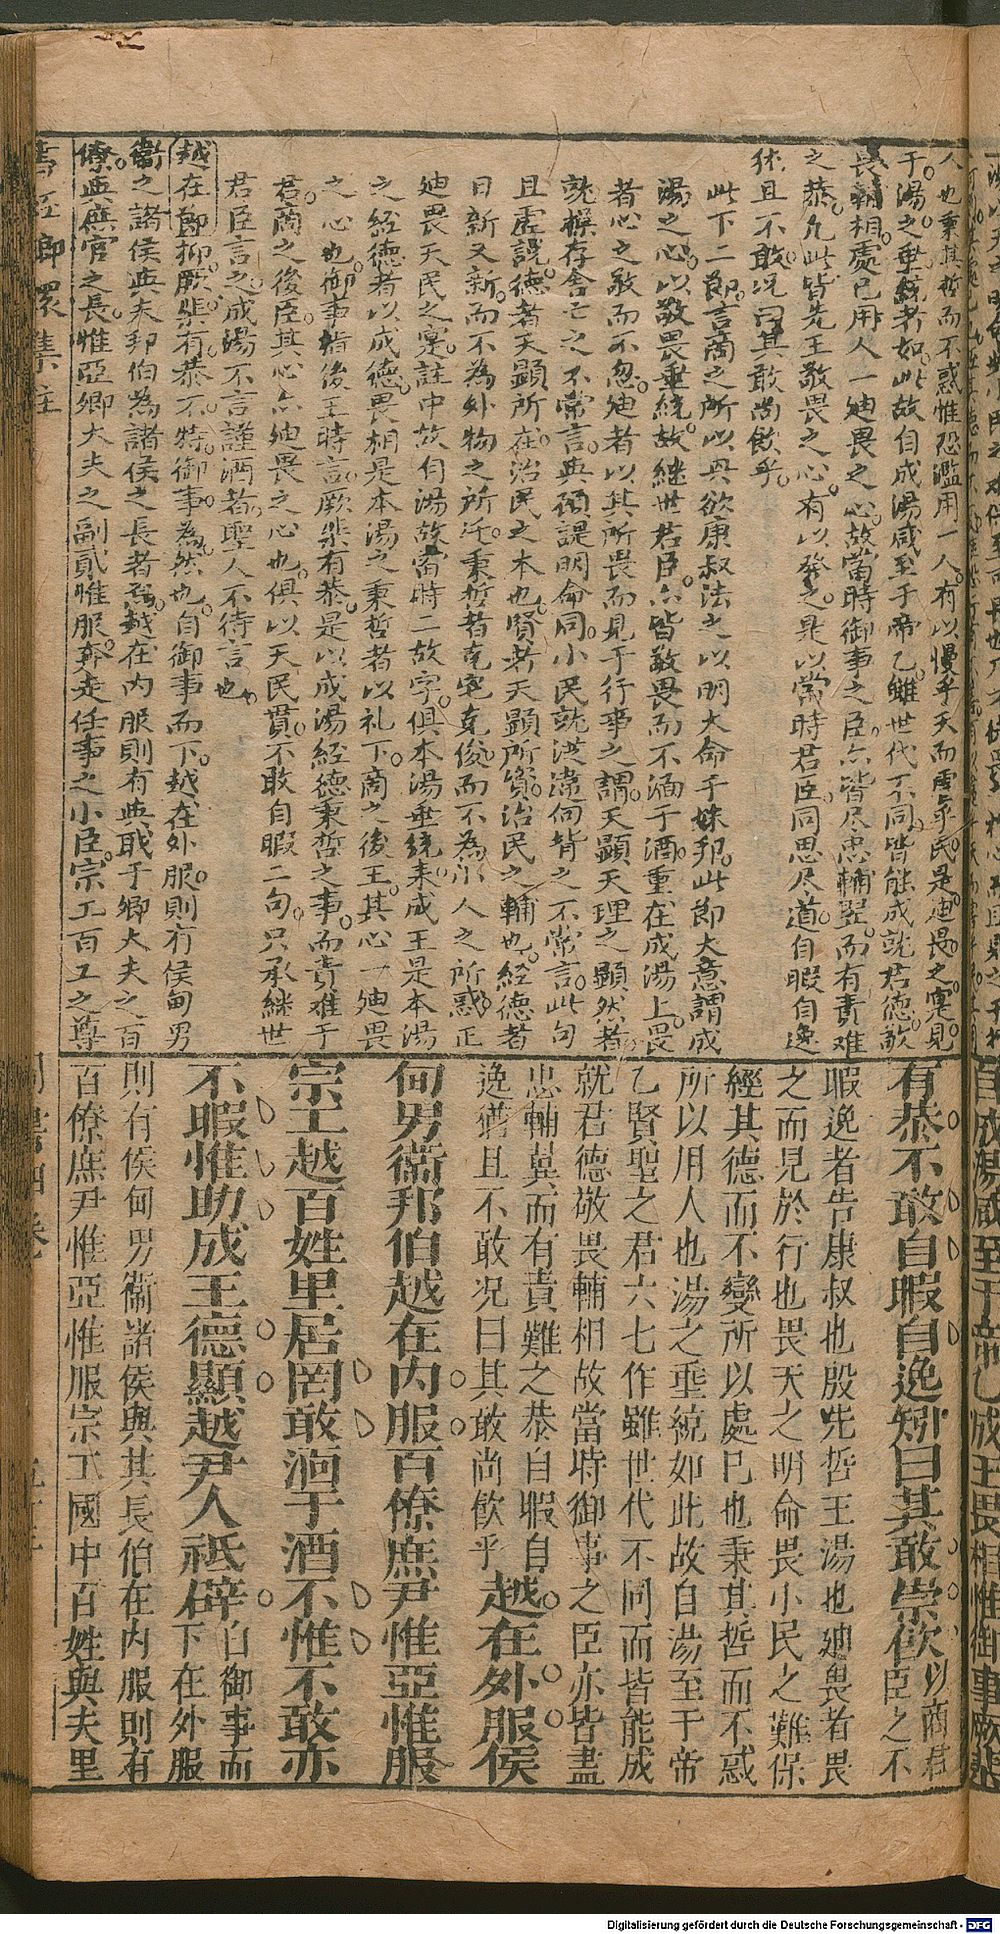 人也秉其哲而不惑惟恐濫用一人有以慢乎天而虐乎民是迪畏之寔見
于湯之垂統者如此故自成湯咸至于帝乙雖世代不同皆能成就君德敬
畏輔相處己用人一迪畏之心故當時御事之臣亦皆尽忠輔翌而有責难
之恭凢此皆先王敬畏之心有以發之是以當時君臣同思尽道自暇自逸
犹且不敢况曰其敢尚飲乎
此下二節言商之所以興欲康叔法之以明大命于妹邦此節大意謂成
湯之心以敬畏垂統故継世君臣亦皆敬畏而不湎于酒重在成湯上畏
者心之敬而不忽迪者以其所畏而見于行事之謂天顯天理之顯然者
就操存舍亡之不常言與顧諟明命同小民就從違向背之不常言此句
且虚說德者天顯所在治民之本也賢者天顯所資治民之輔也經德者
日新又新而不為外物之所迁秉哲者克宅克俊而不為小人之所惑正
迪畏天民之寔註中故自湯故當時二故字俱本湯垂統来成王是本湯
之經德者以成德畏相是本湯之秉哲者以礼下商之後王其心一迪畏
之心也御事指後王時言厥棐有恭是以成湯經德秉哲之事而責难于
君商之後臣其心亦迪畏之心也俱以天民貫不敢自暇二句只承継世
君臣言之成湯不言謹酒者聖人不待言也
越在節抑厥棐有恭不特御事為然也自御事而下越在外服則有侯甸男
衛之諸侯與夫邦伯為諸侯之長者焉越在內服則有與職于卿大夫之百
僚與庶官之長惟亞卿大夫之副貳惟服奔走任事之小臣宗工百工之尊
有恭不敢自暇自逸矧曰其敢崇飲以商君臣之不
暇逸者告康叔也殷先哲王湯也迪畏者畏
之而見於行也畏天之明命畏小民之難保
經其德而不變所以處已也秉其哲而不惑
所以用人也湯之垂統如此故自湯至于帝
乙賢聖之君六七作雖世代不同而皆能成
就君德敬畏輔相故當時御事之臣亦皆盡
忠輔翼而有責難之恭自暇自
逸猶且不敢况曰其敢尚飲乎越在外服侯
甸男衛邦伯越在內服百僚庶尹惟亞惟服
宗工越百姓里居罔敢湎于酒不惟不敢亦
不暇惟助成王德顯越尹人祗辟自御事而下在外服
則有侯甸男衛諸侯與其長伯在內服則有
百僚庶尹惟亞惟服宗工國中百姓與夫里
Digitalisierung gefördert durch die Deutsche Forschungsgemeinschaft - DFG